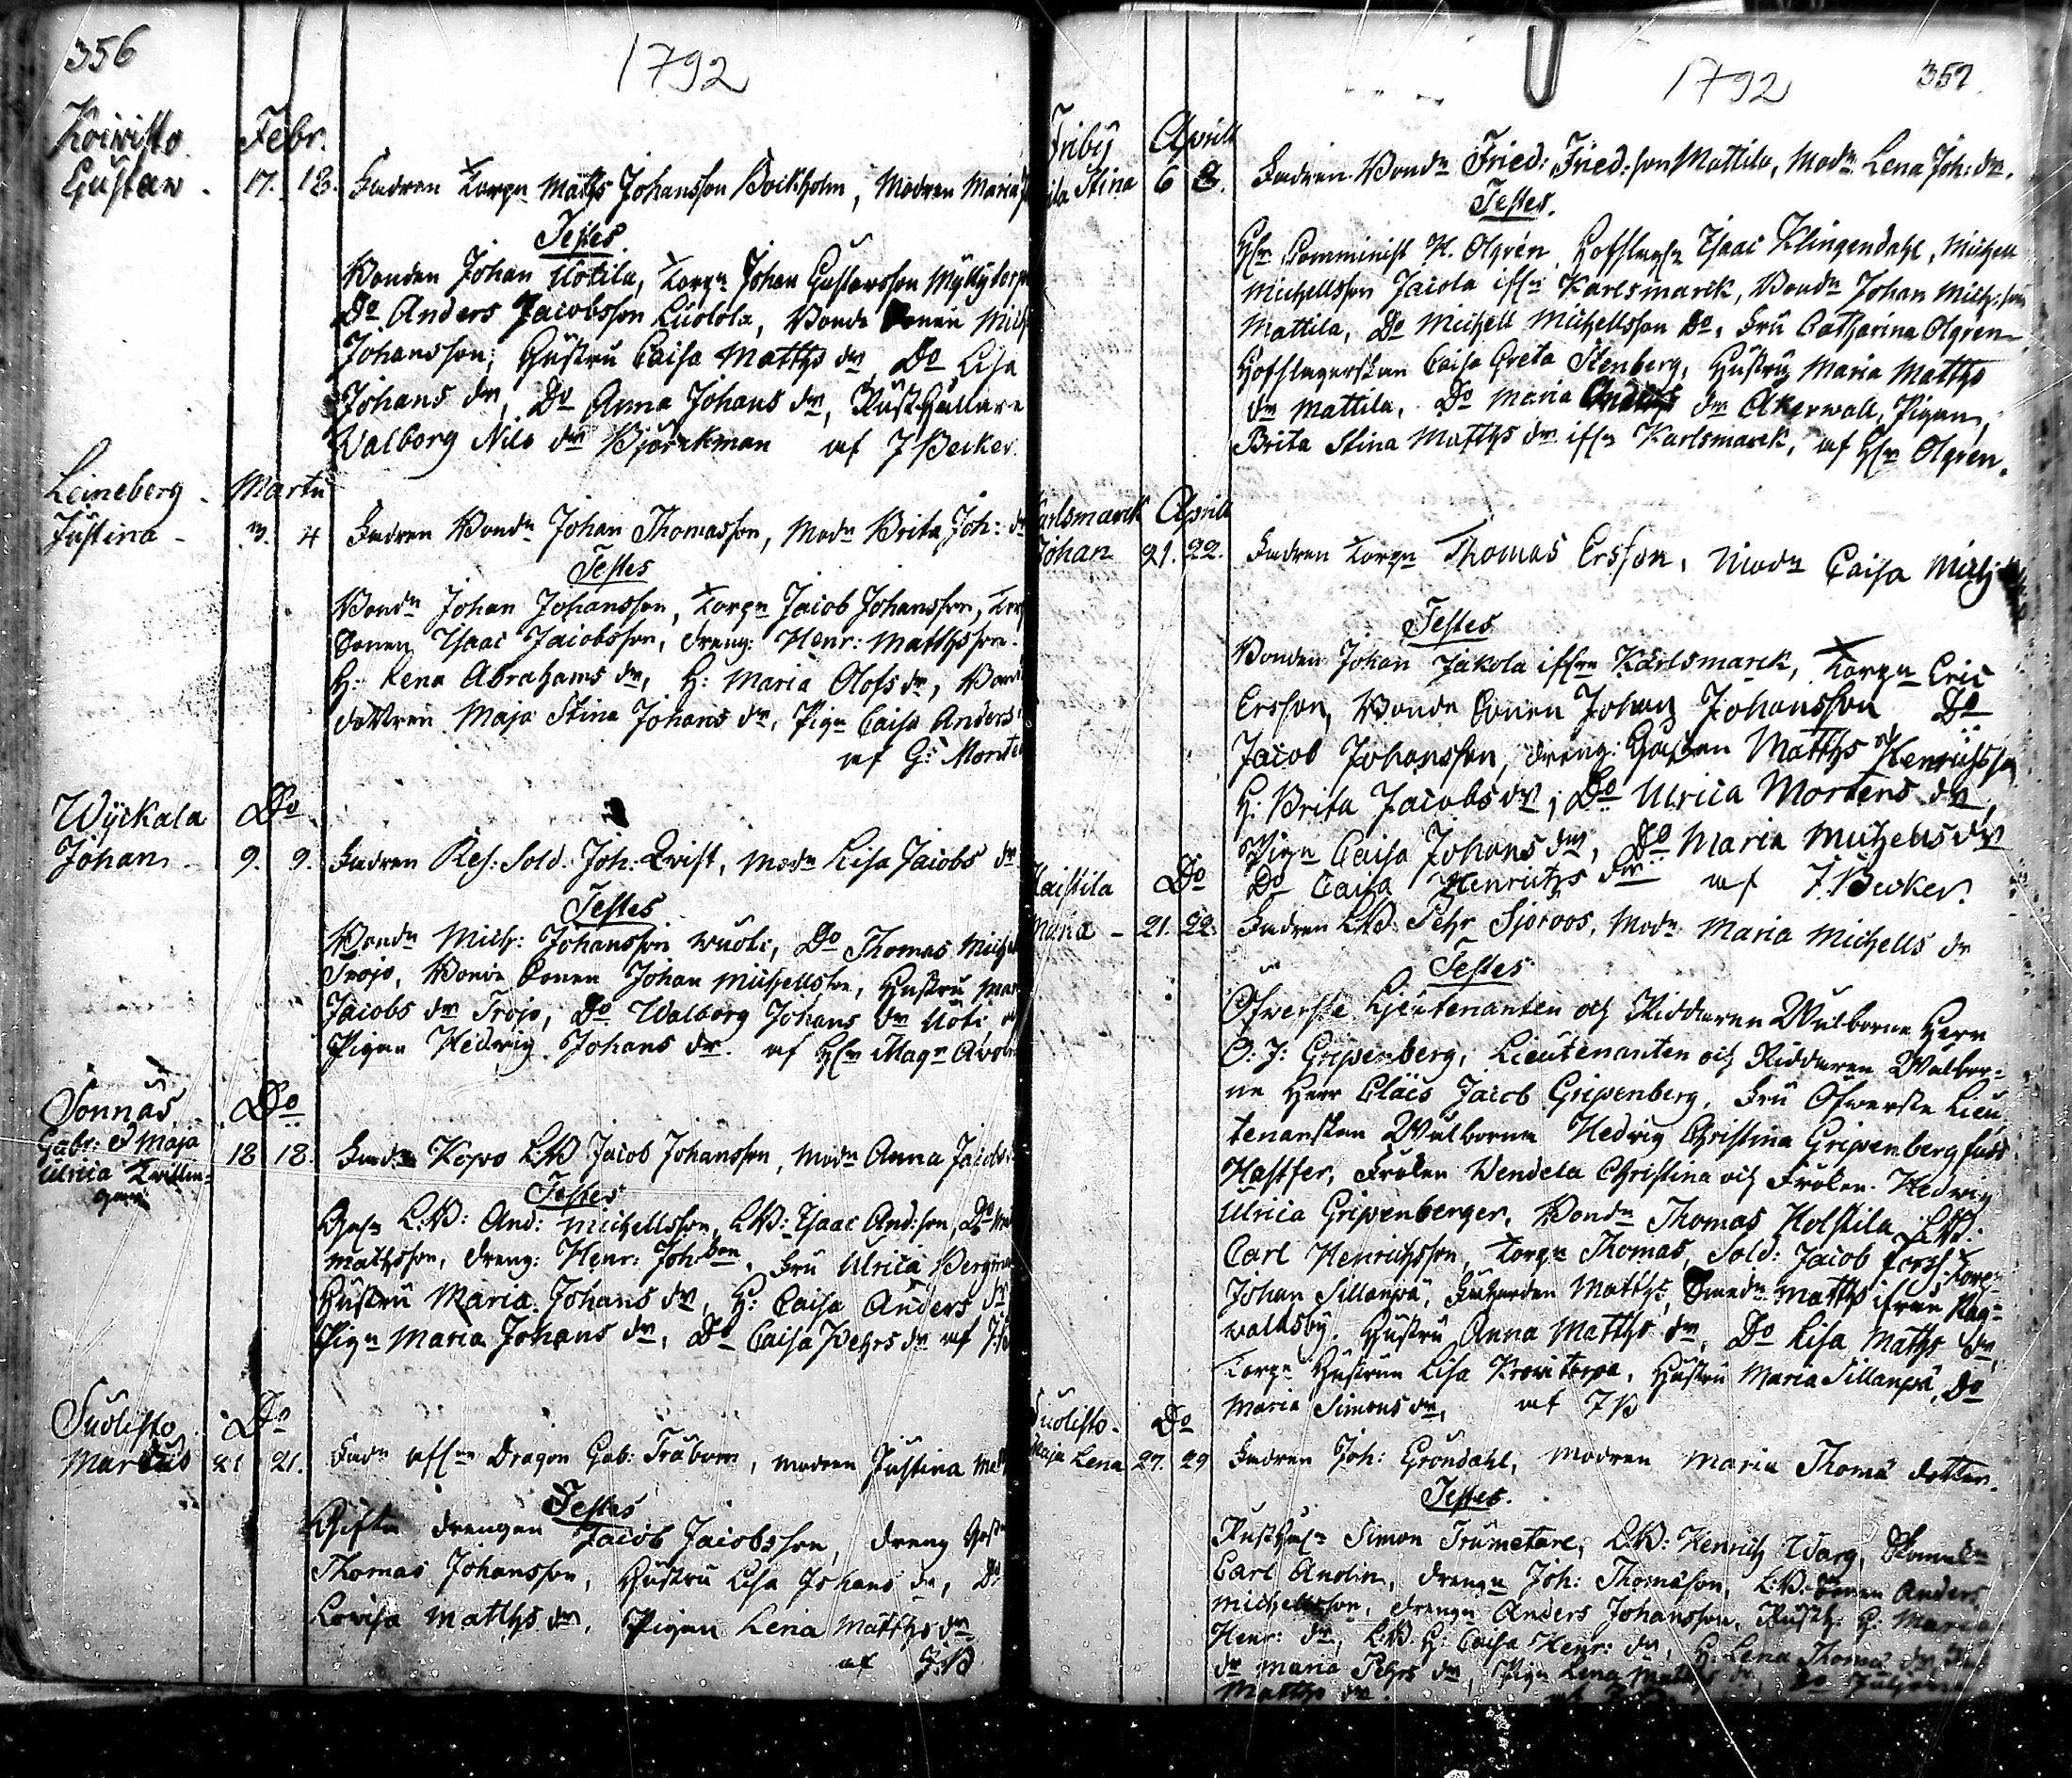 356
1792
Koivisto Febr.
Gustav. 17. 18. Fadren Torpn Matts Johansson Bockholm, Modren Maria
Testes
Bonden Johan Uotila, Torpn Johan Gustafsson Myllytorp
Do Anders Jacobsson Luolola, Bonde Sonen Mich
Johansson, Hustru Caisa Matths dr, Do Lisa
Johans dr, Do Anna Johans dr, Rusthållare
Walborg Nils dr Björckman af J Becker.
Leineberg. Martii
Justina - 3. 4 Fadren Bondn Johan Thomasson, Modn Brita Joh: dr
Testes
Bondn Johan Johansson, Torpn Jacob Johansson,
Sonen Isaac Jacobsson, dreng: Henr: Matthsson.
H: Lena Abrahams dr, H: Maria Olofs dr, Bond
dottren Maja Stina Johans dr, Pign Caisa Anders
af G: Monte
Wyckala Do
Johan. 9. 9. Fadren Res: Sold. Joh: Qvist, Modn Lisa Jacobs dr
Testes
Bondn Mich: Johansson Wuoti, Do Thomas Michel
Trojo, Bonde Sonen Johan Michellson, Hustru Mar
Jacobs dr Trojo, Do Walborg Johans dr Uoti,
Pigan Hedwig Johans dr. af Hr Magr Avol
Sonnäs Do
Gabr: et Maja 18 18. Fadn Kopo L:B Jacob Johansson, Modn Anna Jacobs
Ulrica Tvillin-
gar
Testes
L:B: And: Michellsson, L:B: Isaac And:son, Do
Mathsson, dreng: Henr: Joh:son, Fru Ulrica Bergm
Hustru Maria Johans dr, H: Caisa Anders dr
Pign Maria Johans dr, Do Caisa Pehrs dr af J:B
Suolisto Do
Marcus 21 21. Fadn Dragon Gab: Tråbom, modren Justina Ma
Testes
Gifta drengen Jacob Jacobsson, dreng
Thomas Johansson, Hustru Lisa Johans dr, Do
Lovisa Matths dr, Pigan Lena Matths dr
af J:B
1792 357
Friby Aprill
Stina 6 8. Fadren Bondn Fried: Fried:son Mattila, Modn Lena Joh: dr.
Testes.
Hr Comminist H. Olgren, Hofslagn Isaac Klingendahl, Michell
Michellsson Jacola ifrn Karlsmarck, Bondn Johan Mich:son
Mattila, Do Michell Michellsson Do, Fru Catharina Olgren
Hofslagerskan Caisa Greta Stenberg, Hustru Maria Matths
dr Mattila, Do Maria Anders dr Åkerwall, Pigan,
Brita Stina Matths dr ifrn Karlsmarck, af Hr Olgren.
Karlsmarck Aprill
Johan 21. 22. Fadren Torpn Thomas Ersson, Modn Caisa Mich
Testes
Bonden Johan Jakola ifrn Karlsmarck, Torpn Eric
Ersson, Bonde Sonen Johan Johansson Do
Jacob Johansson, dreng: Gustan Matths och Henrichsson
H: Brita Jacobs dr, Do Ulrica Mortens dr,
Pign Caisa Johans dr, Do Maria Michells dr
Do Caisa Henrichs dr af J. Becker.
Do
Maria - 21. 22. Fadren L:B: Pehr Sjoroos, Modn Maria Michells dr
Testes
Öfwerste Lieutenanten och Riddaren Wälborne Herr
O: J: Gripenberg, Lieutenanten och Riddaren Wälbor-
ne Herr Claes Jacob Gripenberg, Fru Öfwerste Lieu
tenanskan Wälborna Hedwig Christina Gripenberg född
Hastfer, Fröken Wendela Christina och Fröken Hedwig
Ulrica Gripenberger, Bondn Thomas Holstila, L:B:
Carl Henrichsson, Torpn Thomas, Sold: Jacob Torp
Johan Sillanpä, Matths, Matths ifrån Rag-
waldsby, Hustru Anna Matths dr, Do Lisa Maths dr,
Torpn Hustrun Lisa Krowitorpa, Hustru Maria Sillanpä, Do
Maria Simons dr, af J B
Suolisto. Do
Maja Lena 27. 29 Fadren Joh: Gröndahl, modren Maria Thoma dotter.
Testes.
Rusthn Simon Trumetare, L:B: Henrich Warg,
Carl Anolin, drengn Joh: Thomason, L:B: Sonen Anders
Michellsson, drengn Anders Johansson, Rusth: H: Maria
Henr: dr, L:B: H: Caisa Henr: dr, H: Lena Thomæ dr
dr Maria Pehrs dr, Pign Lena Matths dr, Do
Matths dr.